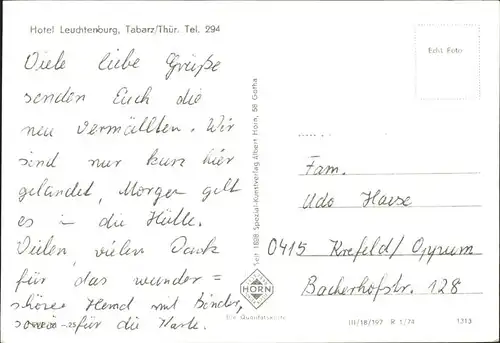 Hotel Leuchtenburg, Tabarz/Thür. Tel. 294
Viele liebe Grüße
senden Euch die
neu vermällten. Wir
sind nur kurz hier
gelandet, Morgen geht
es in die Hütte.
Vielen, vielen Dank
für das wunder=
schöne Hemd mit Binder,
sowie für die Karte.
Seit 1898 Spezial-Kunstverlag Albert Horn, 58 Gotha
HORN
Die Qualitätskarte
Echt Foto
Fam.
Udo Hase
0415 Krefeld/Oppum
Bacherhofstr. 128
III/18/197 R 1/74 1313